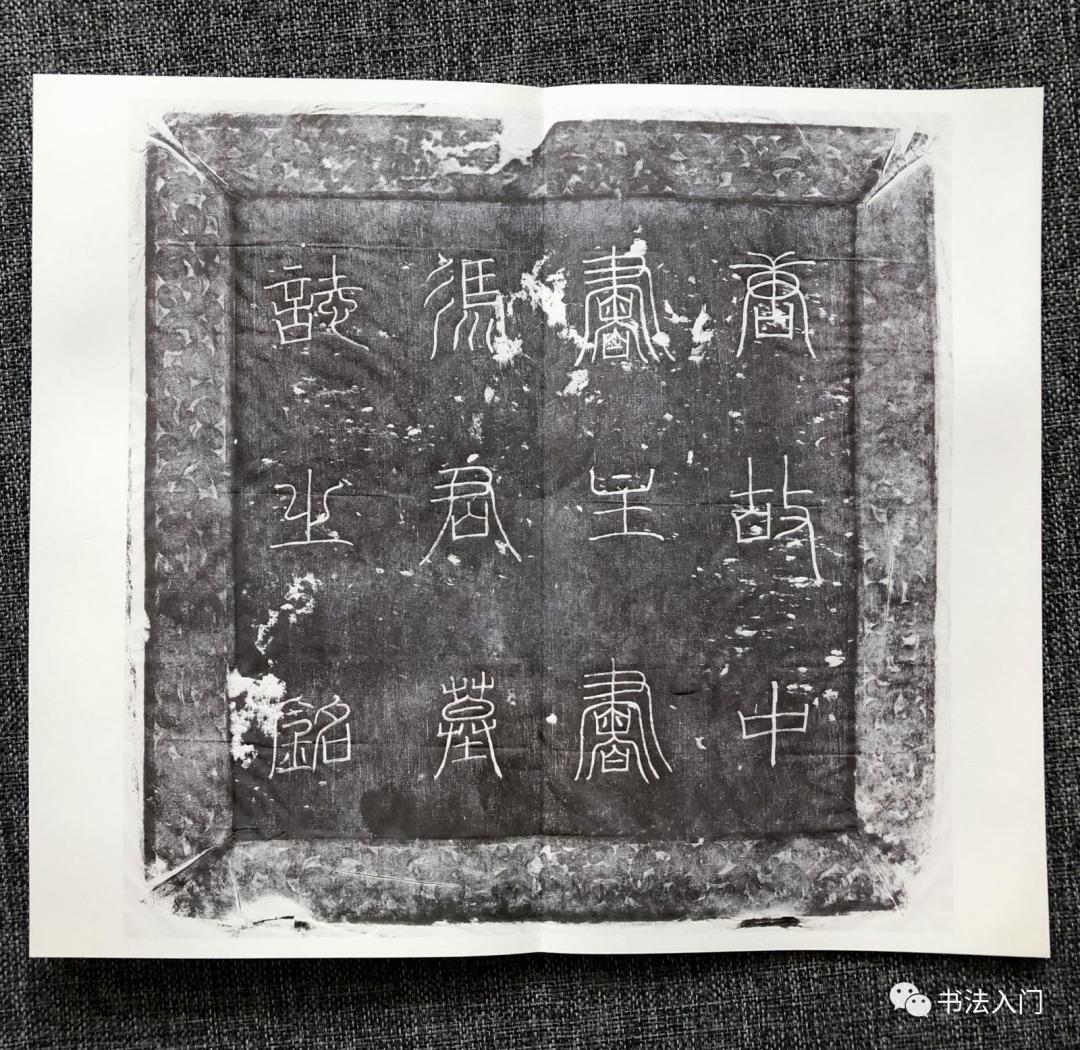 唐故中
書主書
馮君墓
誌之銘
书法入门